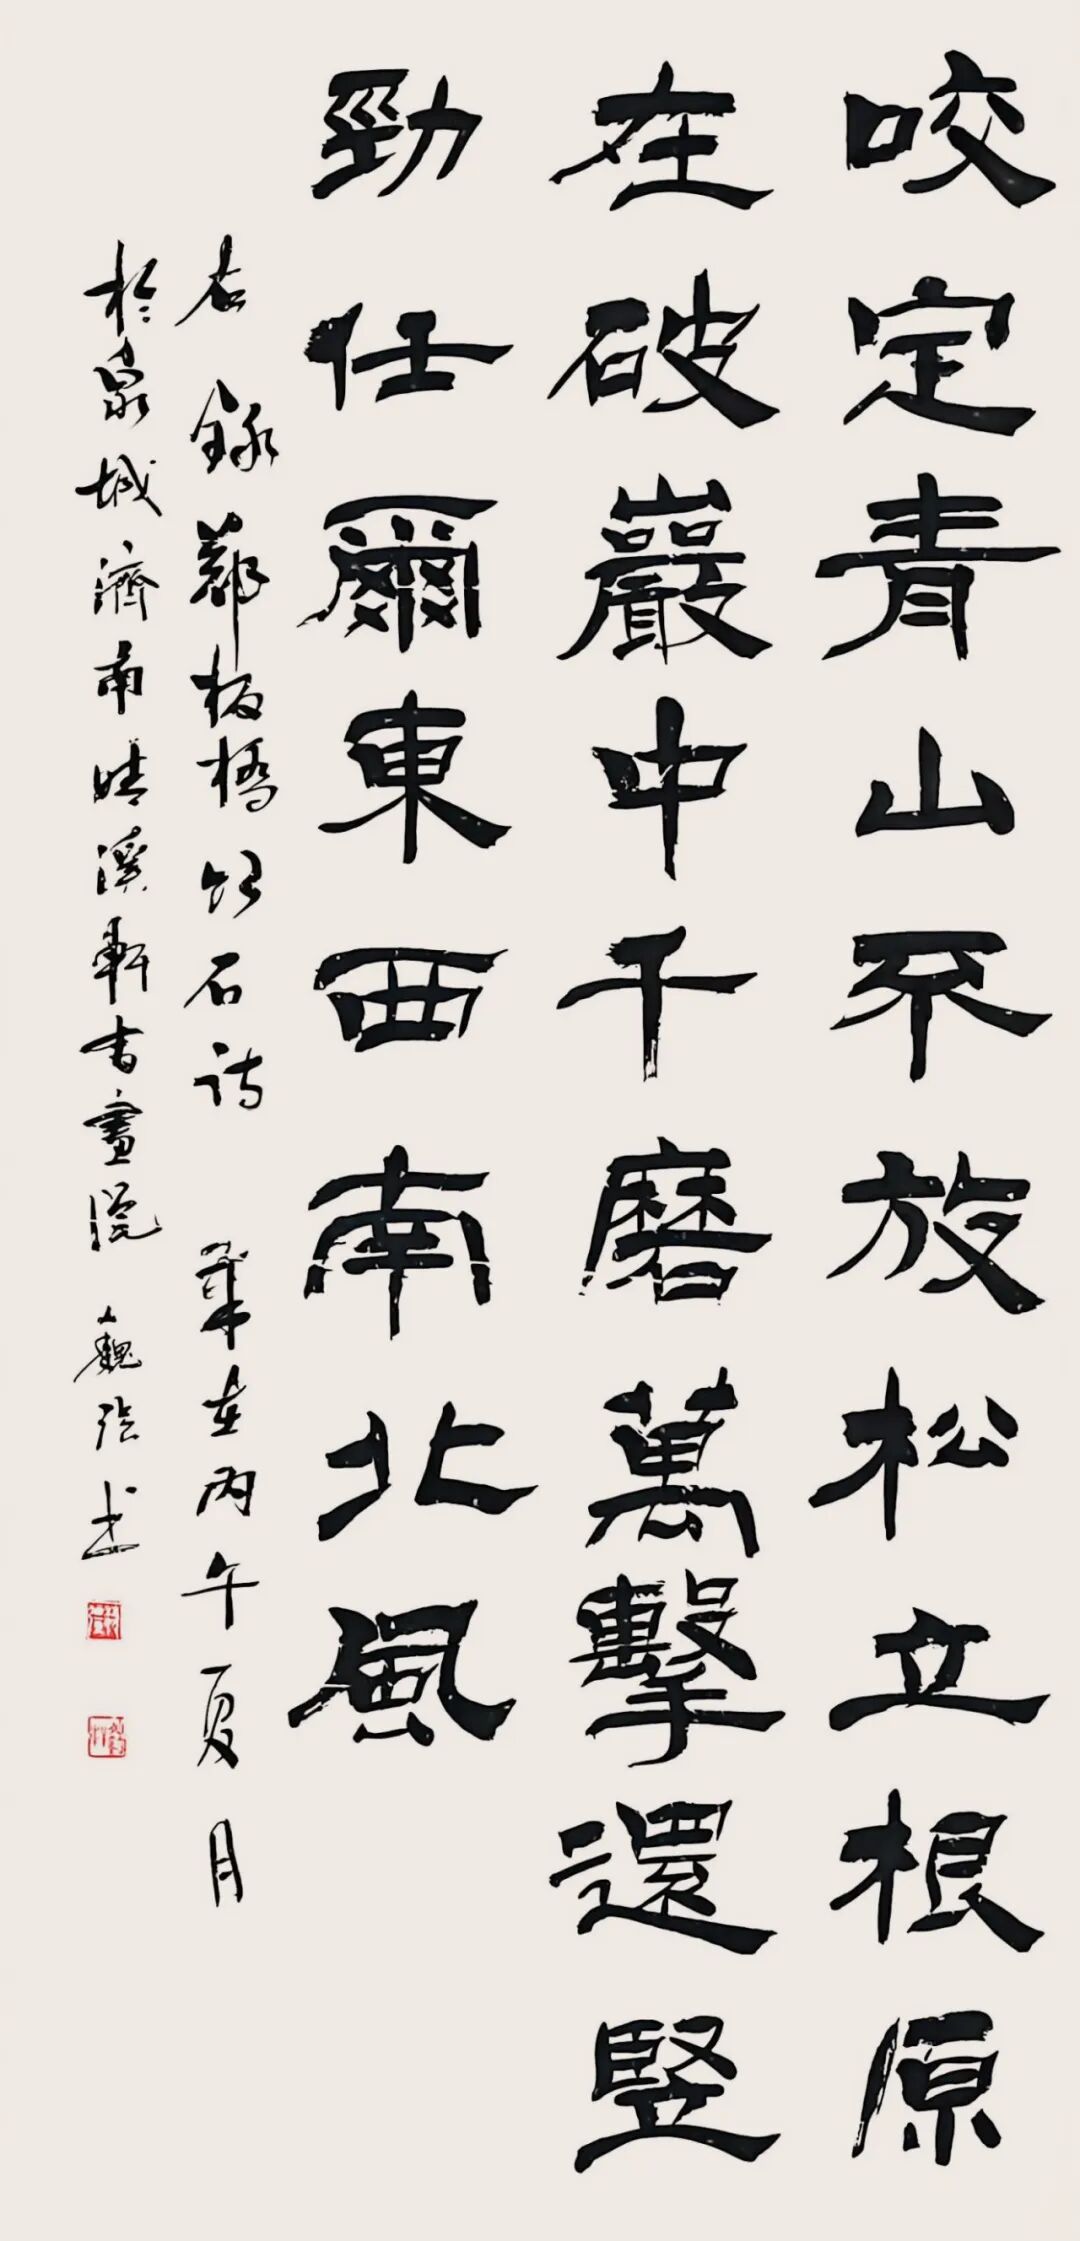 咬定青山不放松立根原
在破巖中千磨萬擊還竪
勁任爾東西南北風
右錄鄭板橋竹石詩 歲在丙午夏月
於泉城濟南晴溪軒書畫院 巍书